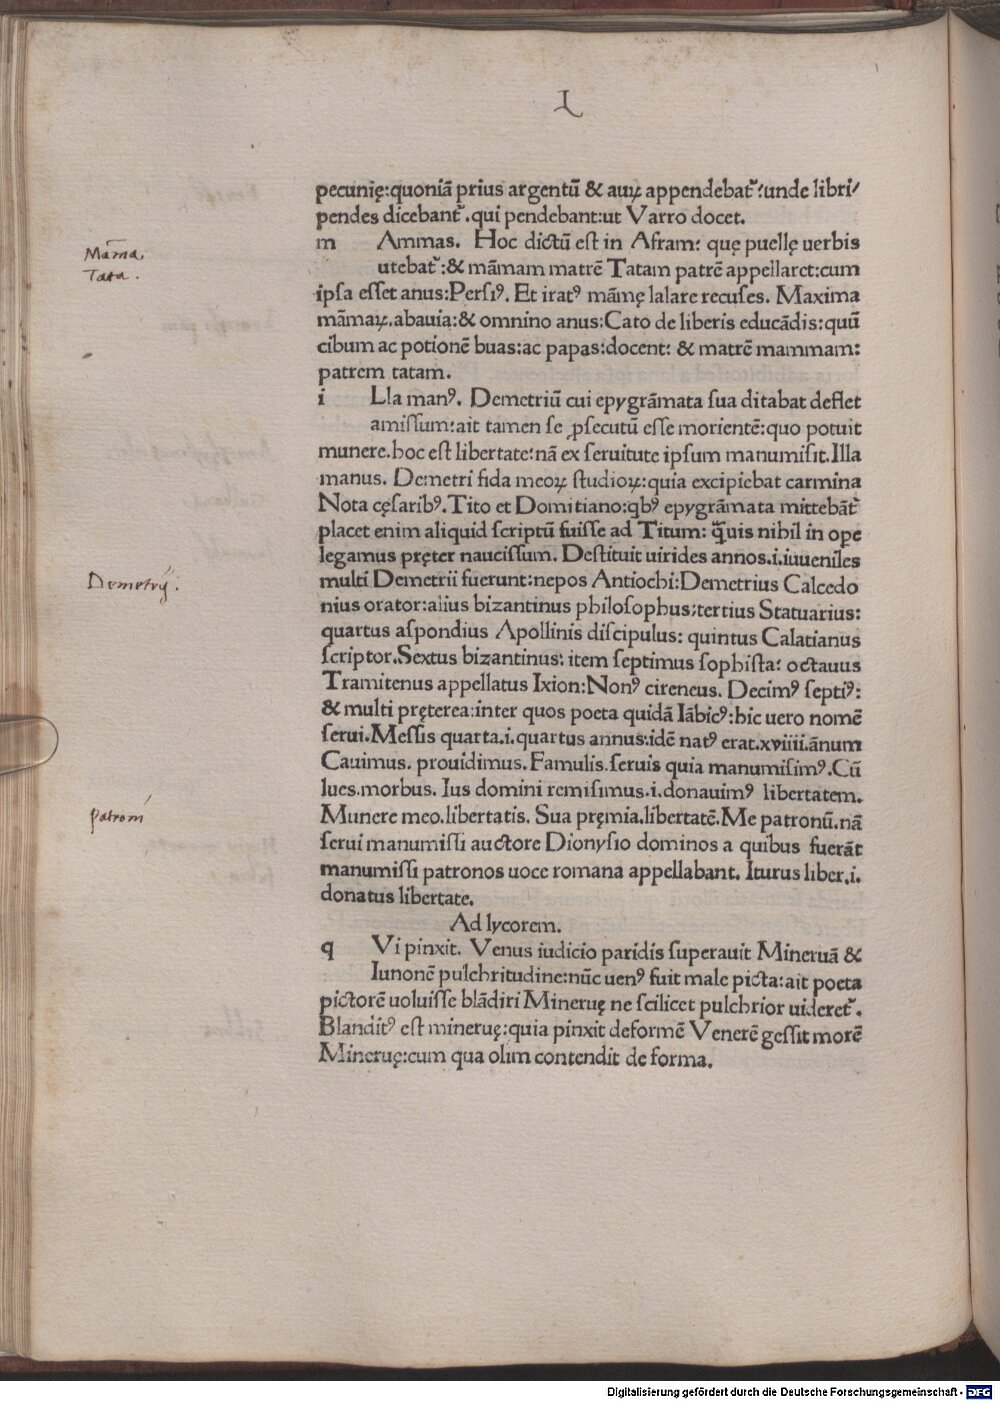 I
pecunię:quoniā prius argentū & auꝝ appendebat᷑:unde libri/
pendes dicebant᷑.qui pendebant:ut Varro docet.
m Ammas. Hoc dictū est in Afram: quę puellę uerbis
Māma.
utebat᷑:& māmam matrē Tatam patrē appellaret:cum
Tata.
ipsa esset anus:Persiꝰ. Et iratꝰ māmę lalare recuses. Maxima
māmaꝝ.abauia:& omnino anus:Cato de liberis educādis:quū
cibum ac potionē buas:ac papas:docent: & matrē mammam:
patrem tatam.
i Lla manꝰ. Demetriū cui epygrāmata sua ditabat deflet
amissum:ait tamen se ꝓsecutū esse morientē:quo potuit
munere.hoc est libertate:nā ex seruitute ipsum manumisit.Illa
manus. Demetri fida meoꝝ studioꝝ:quia excipiebat carmina
Nota cęsaribꝰ.Tito et Domitiano:qbꝰ epygrāmata mittebāt᷑
placet enim aliquid scriptū fuisse ad Titum: q̄uis nihil in ope
legamus pręter naucissum. Destituit uirides annos.i.iuueniles
multi Demetrii fuerunt:nepos Antiochi:Demetrius Calcedo
Demetrij.
nius orator:alius bizantinus philosophus:tertius Statuarius:
quartus aspondius Apollinis discipulus: quintus Calatianus
scriptor.Sextus bizantinus: item septimus sophista: octauus
Tramitenus appellatus Ixion:Nonꝰ cireneus. Decimꝰ septiꝰ:
& multi pręterea:inter quos poeta quidā Iābicꝰ:hic uero nomē
serui.Messis quarta.i.quartus annus:idē natꝰ erat.xviiii.ānum
Cauimus. prouidimus. Famulis.seruis quia manumisimꝰ.Cū
lues.morbus. Ius domini remisimus.i.donauimꝰ libertatem.
Munere meo.libertatis. Sua pręmia.libertatē.Me patronū.nā
patroni
serui manumissi auctore Dionysio dominos a quibus fuerāt
manumissi patronos uoce romana appellabant. Iturus liber.i.
donatus libertate.
Ad lycorem.
q Vi pinxit. Venus iudicio paridis superauit Mineruā &
Iunonē pulchritudine:nūc uenꝰ fuit male picta:ait poeta
pictorē uoluisse blādiri Mineruę ne scilicet pulchrior uideret᷑.
Blanditꝰ est mineruę:quia pinxit deformē Venerē gessit morē
Mineruę:cum qua olim contendit de forma.
Digitalisierung gefördert durch die Deutsche Forschungsgemeinschaft - DFG